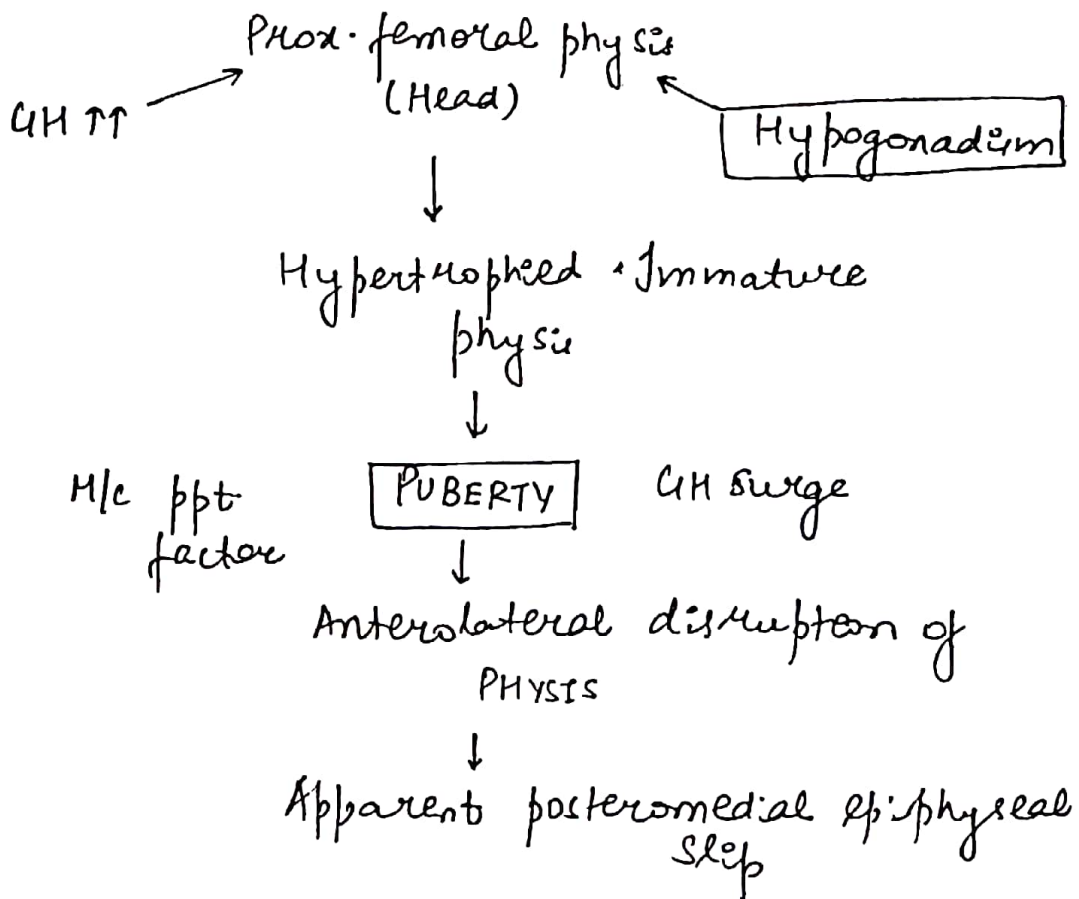 Prox. femoral physis
(Head)
GH ↑↑
Hypogonadism
Hypertrophied · Immature
physis
M/c ppt
factor
PUBERTY
GH surge
Anterolateral disruption of
PHYSIS
Apparent posteromedial epiphyseal
slip